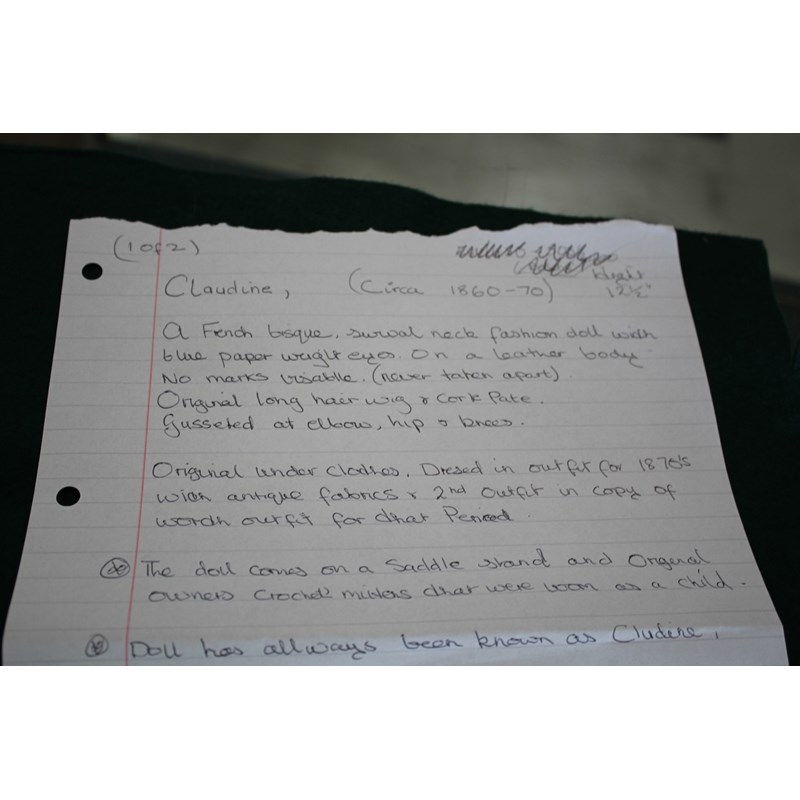 (1 of 2)
Height
Claudine, (Circa 1860-70) 12½"
A Fench bisque, swival neck fashion doll with
blue paper weight eyes. On a leather body
No marks visable. (never taken apart).
Original long hair wig & Cork Pate.
Gusseted at elbow, hip & knees.
Original under clothes. Dresed in outfit for 1870's
with antique fabrics & 2nd outfit in copy of
worth outfit for that Period.
The doll comes on a Saddle stand and Original
owners Crochet mittens that were worn as a child.
Doll has allways been known as Cludene,